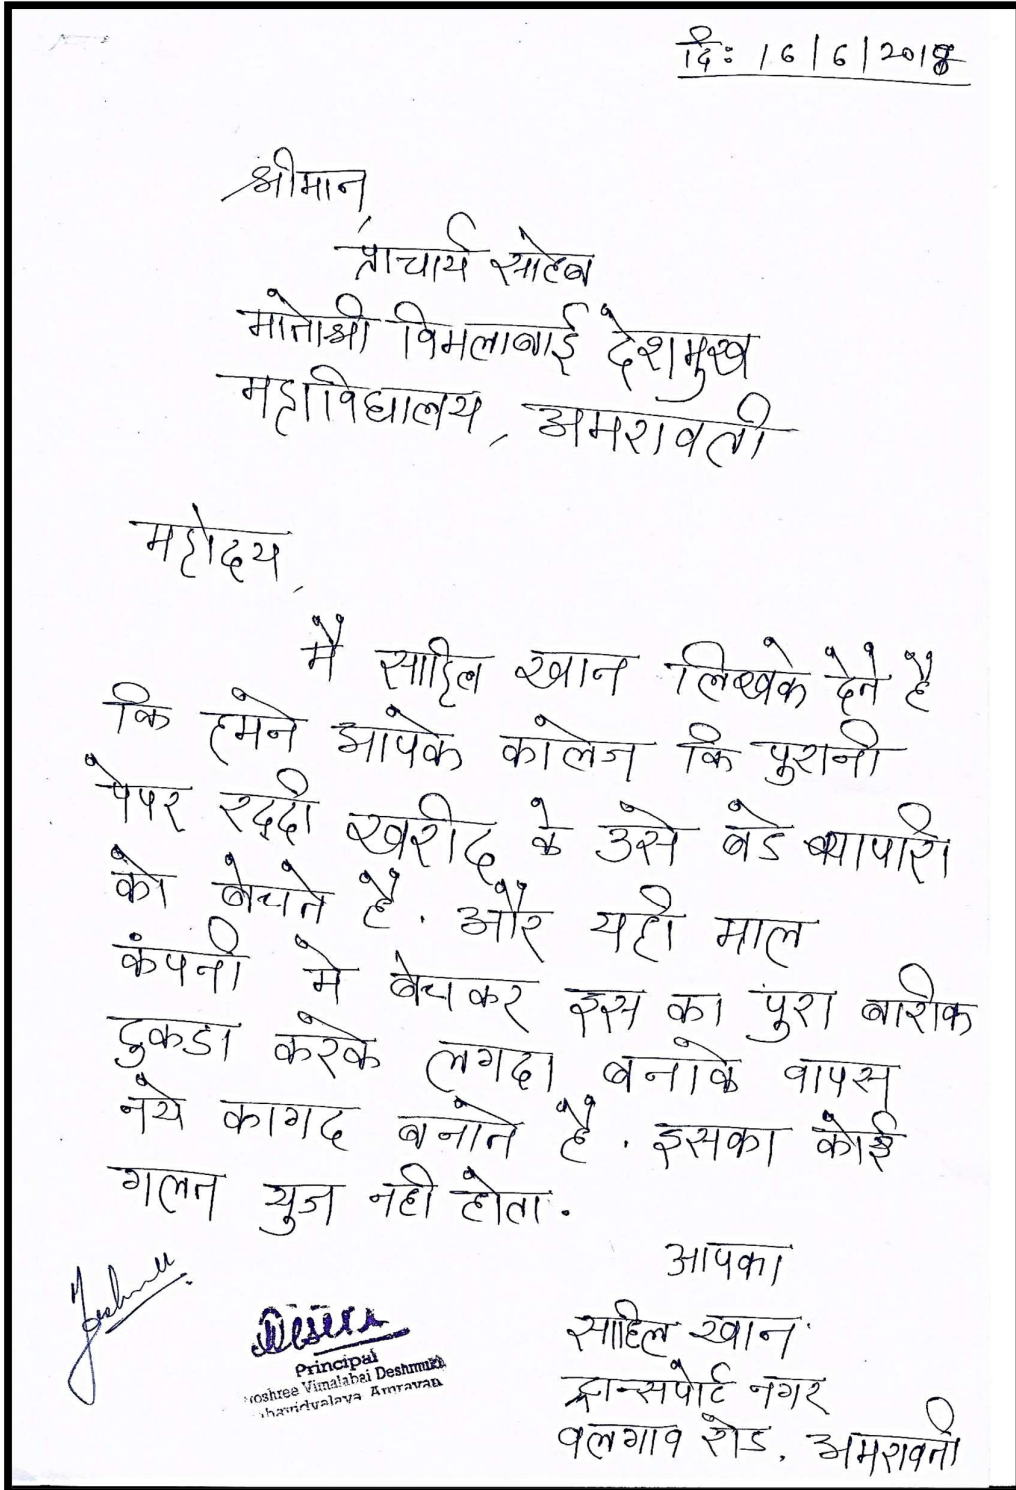 दि: 16/6/2018
श्रीमान,
प्राचार्य साहेब
मातोश्री विमलाबाई देशमुख
महाविद्यालय, अमरावती
महोदय,
मै साहिल खान लिखके देते है
कि हमने आपके कॉलेज कि पुरानी
पेपर रद्दी खरीद के उसे बडे ब्यापारी
को बेचते है. और यही माल
कंपनी मे बेचकर इस का पुरा बारीक
टुकडा करके लगदा बनाके वापस
नये कागद बनाते है. इसका कोई
गलत युज नही होता.
आपका
साहिल खान
ट्रान्सपोर्ट नगर
वलगाव रोड, अमरावती
Principal
oshree Vimalabai Deshmukh
havidyalaya Amravati